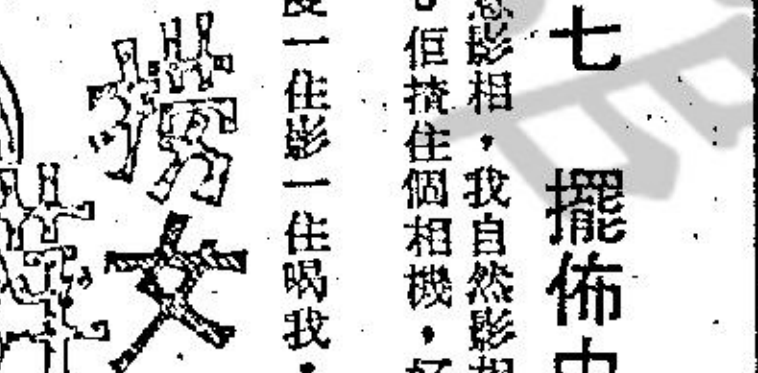 七 擺佈
影相，我自然影相
佢揸住個相機，好
度一住影一住喝我，
捞女